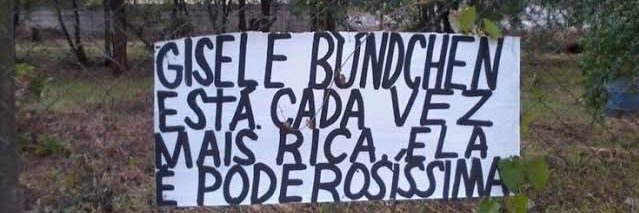 GISELE BUNDCHEN
ESTÁ CADA VEZ
MAIS RICA, ELA
É PODEROSÍSSIMA